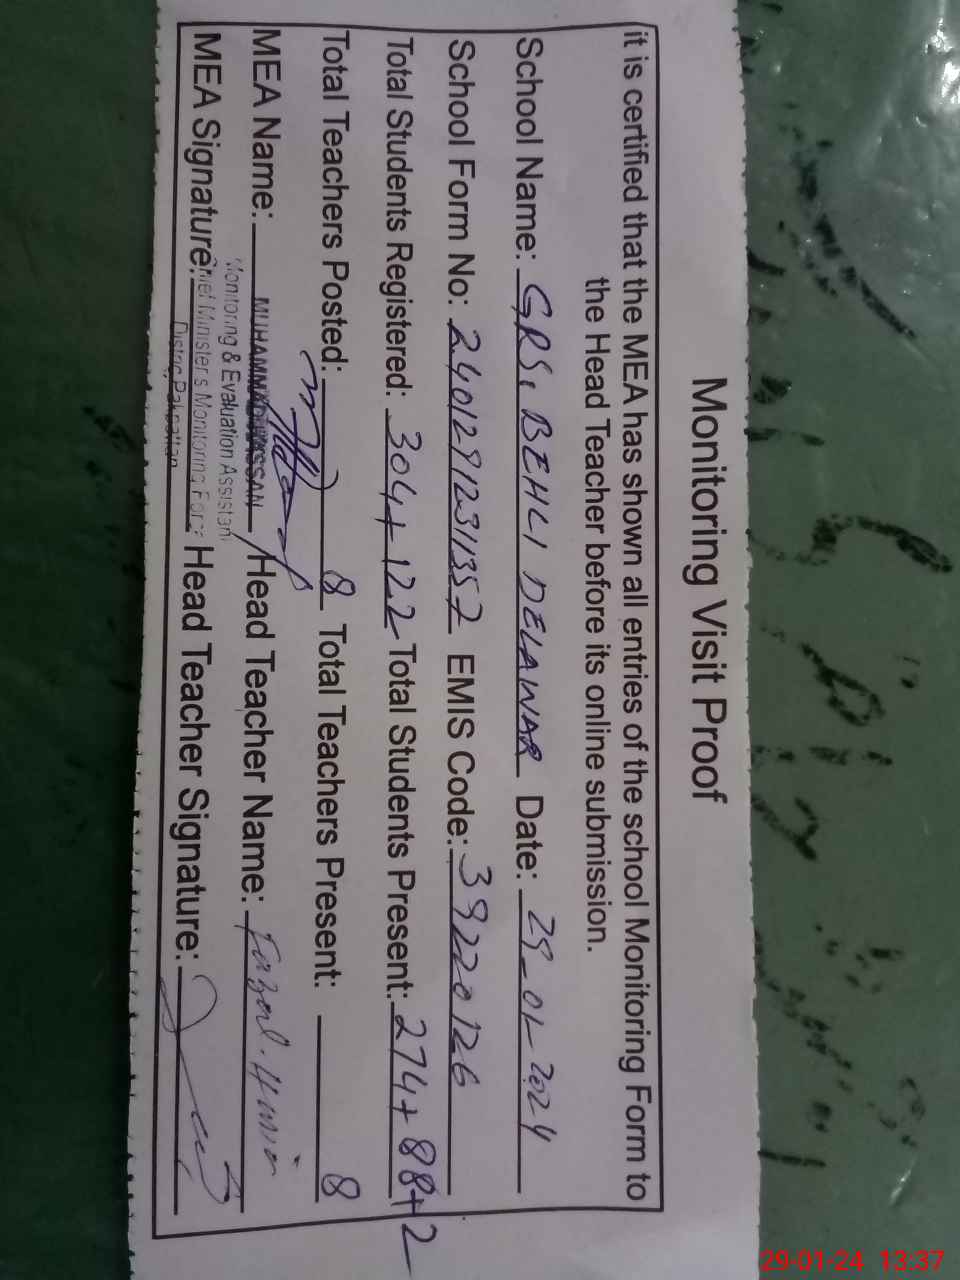 Monitoring Visit Proof
it is certified that the MEA has shown all entries of the school Monitoring Form to
the Head Teacher before its online submission.
School Name: GPS, BEHLI DELAWAR Date: 29-01-2024
School Form No: 24012912331357 EMIS Code: 39220126
Total Students Registered: 304+122 Total Students Present: 274+88+2
Total Teachers Posted: 8 Total Teachers Present: 8
MEA Name: MUHAMMAD HASSAN Head Teacher Name: Fazal
Monitoring & Evaluation Assistant
MEA Signature: Chief Minister's Monitoring Force Head Teacher Signature:
District Pakpattan
29-01-24 13:37